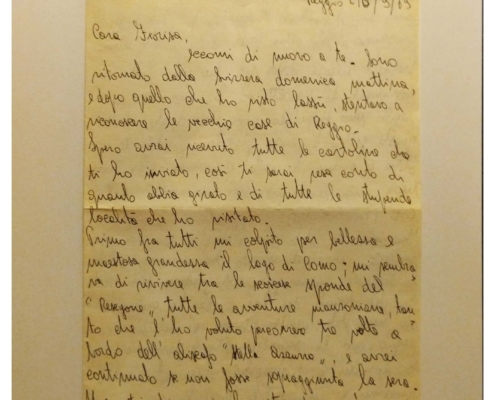 Reggio 28/9/69
Cara Fiorisa,
eccomi di nuovo a te. Sono
ritornato dalla Svizzera domenica mattina,
e dopo quello che ho visto lassù, stentavo a
riconoscere le vecchie case di Reggio.
Spero avrai ricevuto tutte le cartoline che
ti ho inviato, così ti sarai resa conto di
quanto abbia girato e di tutte le stupende
località che ho visitato.
Primo fra tutti mi colpito per bellezza e
maestosa grandezza il lago di Como; mi sembra
va di rivivere tra le scoscese sponde del
"Resegone" tutte le avventure manzoniane, tan
to che l'ho voluto percorrere tre volte a
bordo dell'aliscafo "Stella Azzurra", e avrei
continuato se non fosse sopraggiunta la sera.